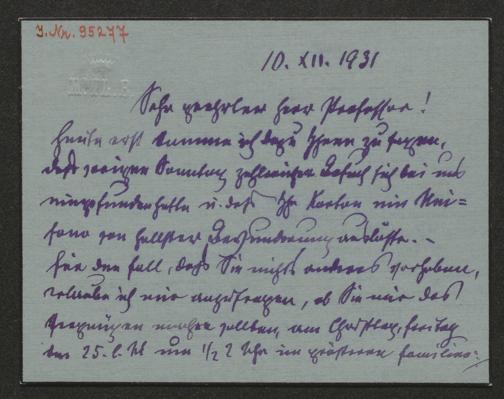 I.Nr. 95277
10. XII. 1931
Sehr geehrter Herr Professor!
Heute erst komme ich dazu Ihnen zu sagen,
daß vorigen Sonntag zahlreicher Besuch sich bei uns
eingefunden hatte u. daß Ihr Karton ein Uni=
sono von hellster Bewunderung auslöste. –
Für den Fall, daß Sie nichts anderes vorhaben,
erlaube ich mir anzufragen, ob Sie mir das
Vergnügen machen wollten, am Christtag, Freitag
den 25. l. M. um ½ 2 Uhr im größeren Familien-